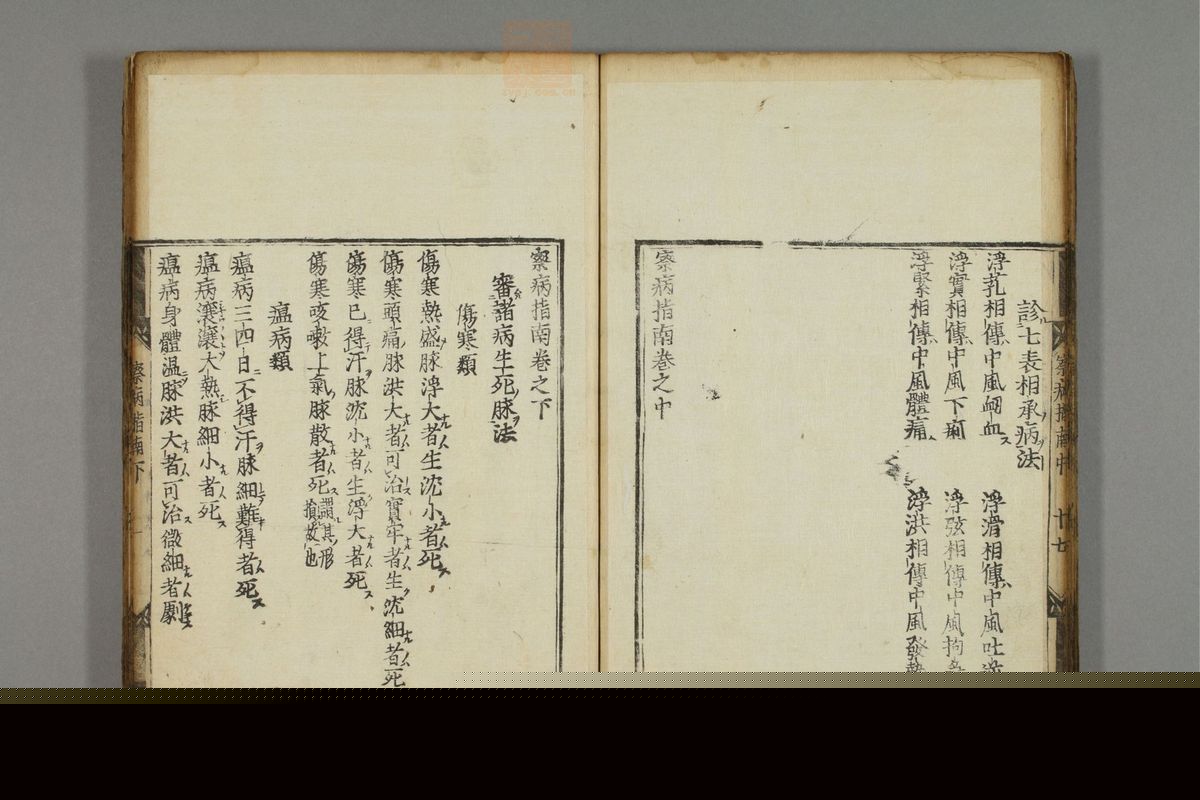 診七表相承病法
浮芤相傳中風衂血　浮滑相傳中風吐
浮實相傳中風下痢　浮弦相傳中風拘
浮緊相傳中風體痛　浮洪相傳中風發熱
察病指南卷之中
察病指南中　十七
察病指南卷之下
審諸病生死脉法
傷寒類
傷寒熱盛脉浮大者生沈小者死
傷寒頭痛脉洪大者可治實牢者生沈細者死
傷寒已得汗脉沈小者生浮大者死
傷寒咳嗽上氣脉散者死謂其形損故也
瘟病類
瘟病三四日不得汗脉細難得者死
瘟病瀼瀼大熱脉細小者死
瘟病身體温脉洪大者可治微細者劇
察病指南下